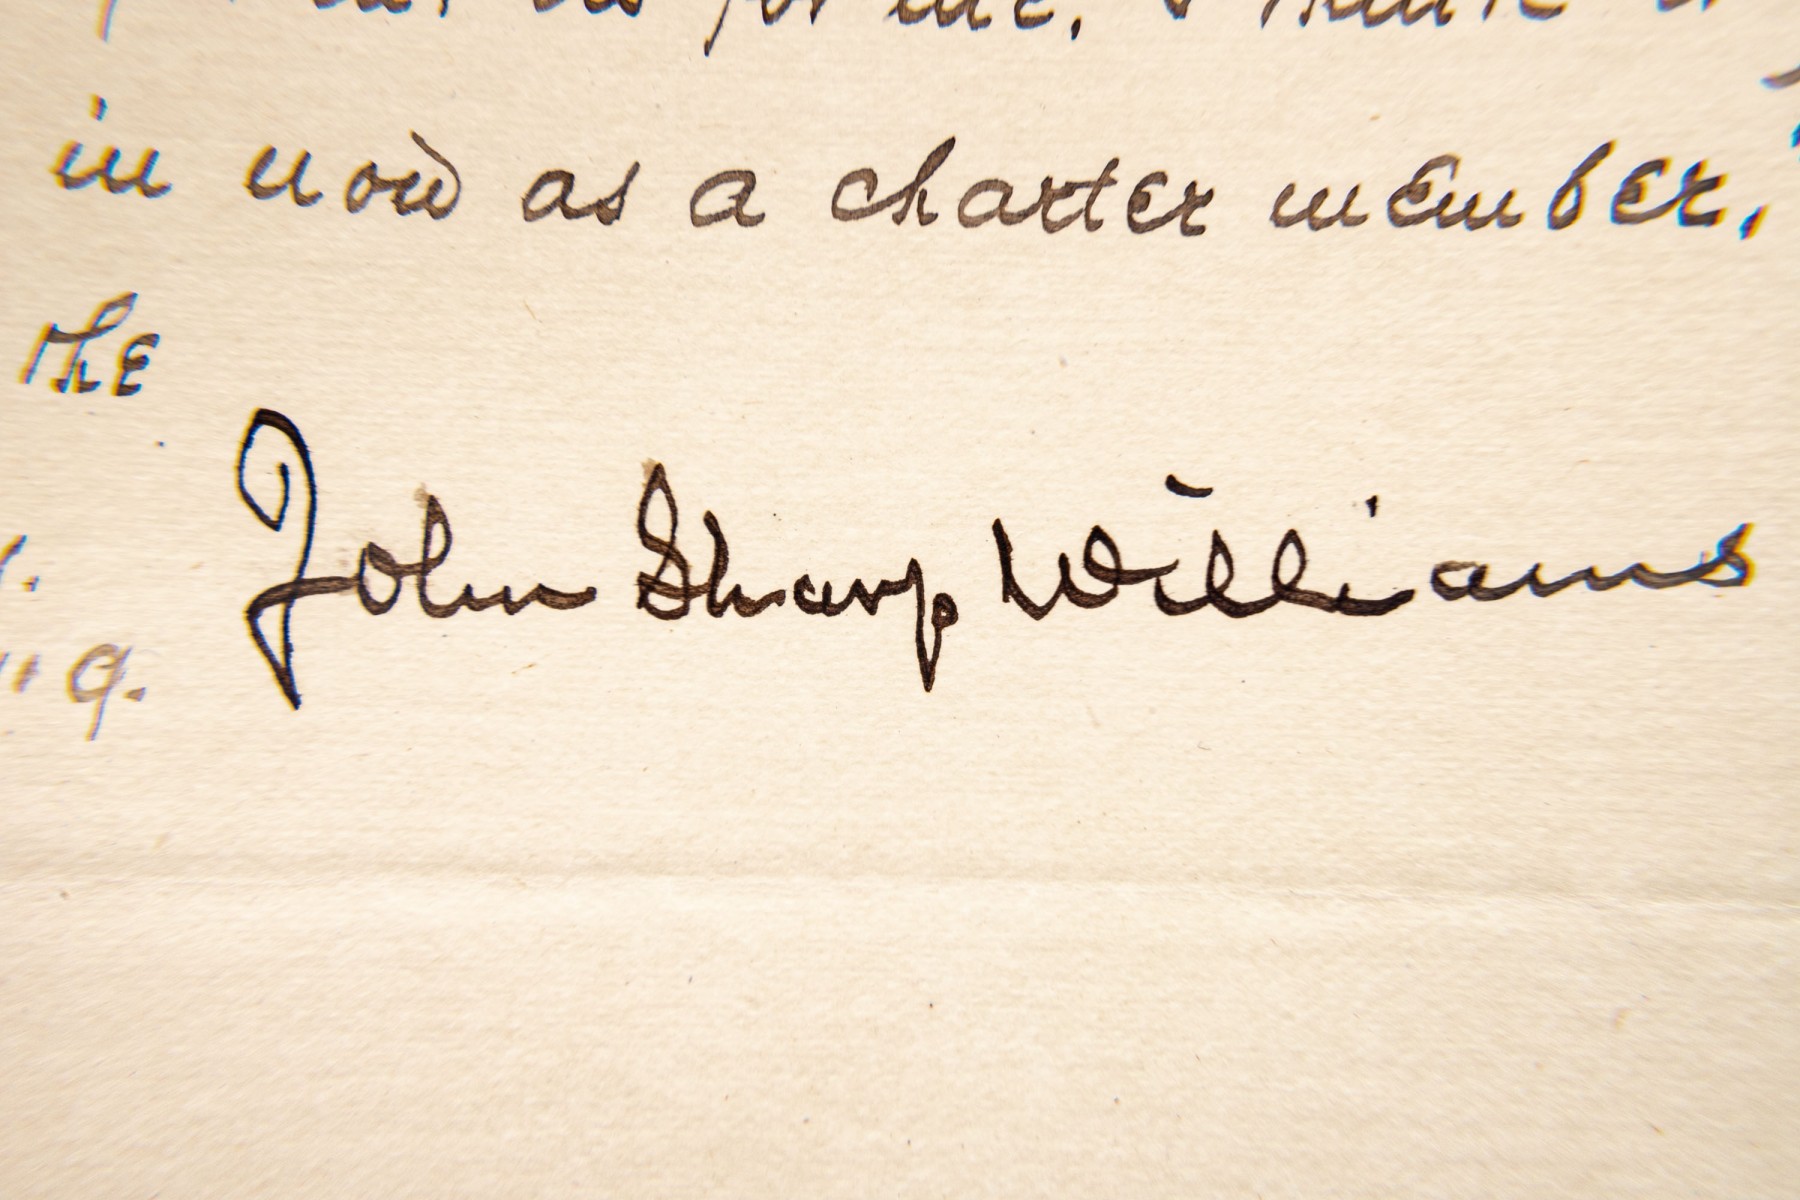 for me. I think
in now as a charter member,
the
John Sharp Williams
g.